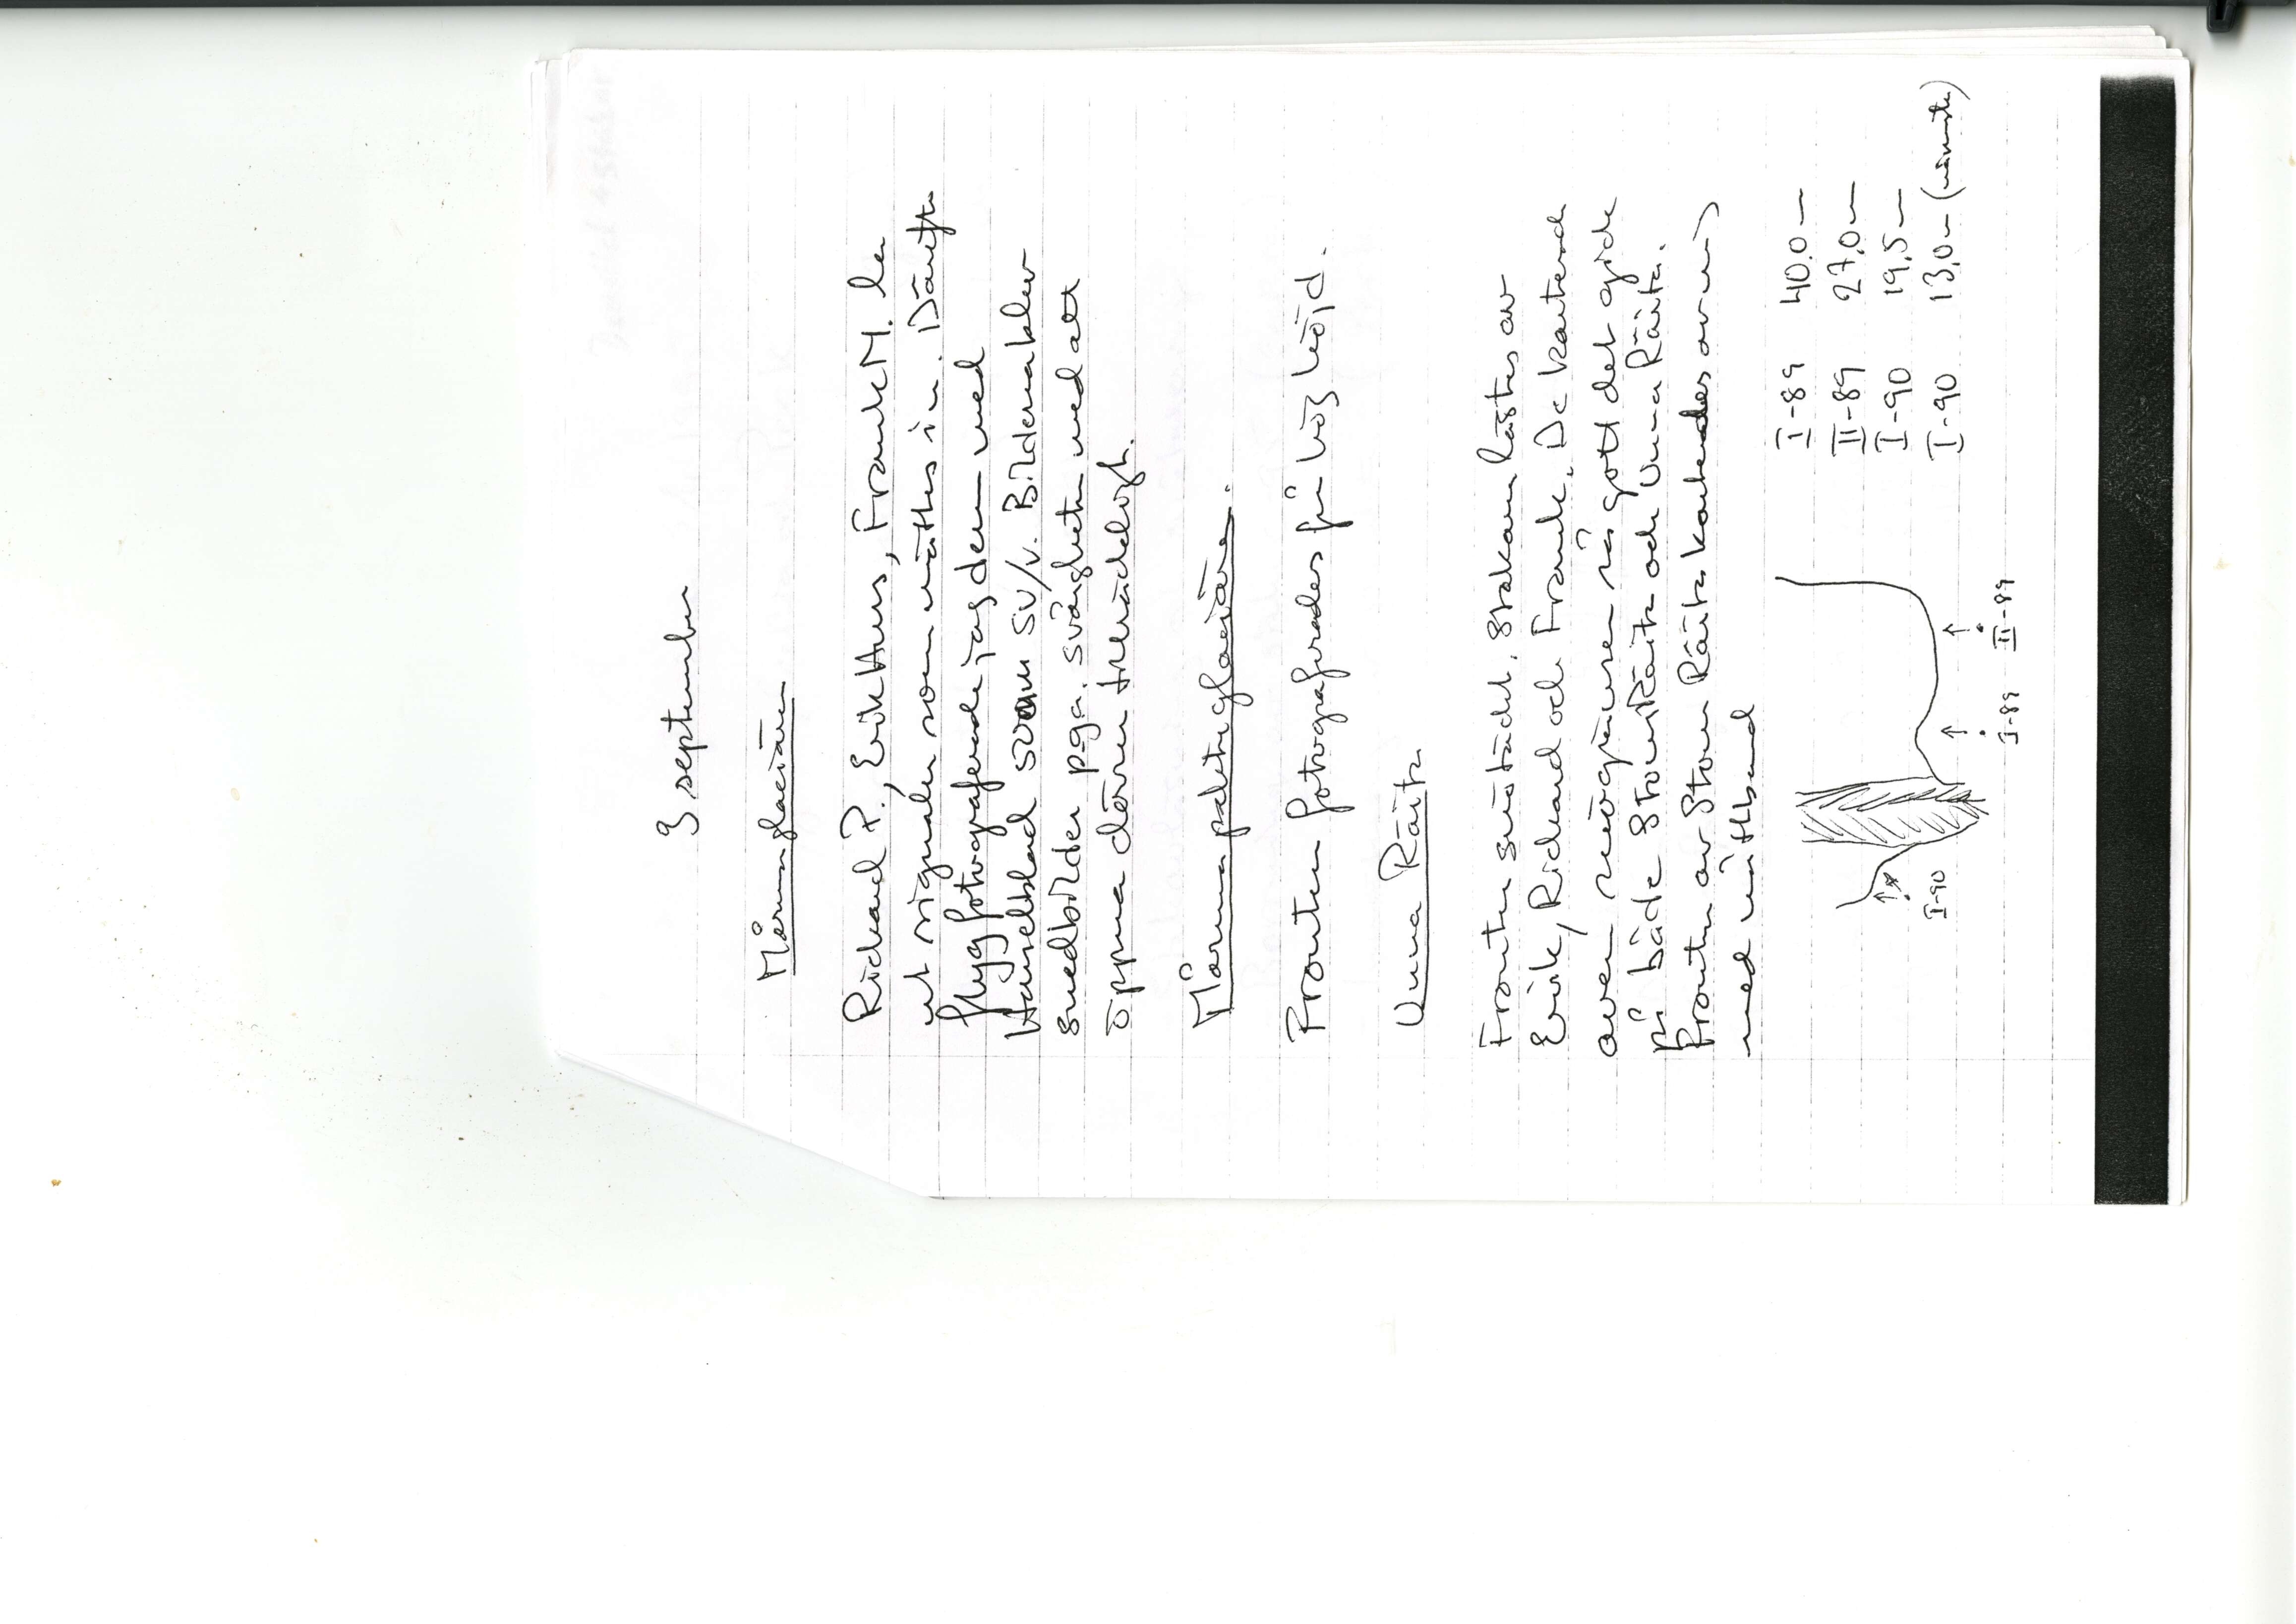 3 september
Mårmaglaciären
Rickard P., Erik Huss, Frank M. la
ut signaler som mättes in. Därefter
flygfotograferade jag dem med
Hasselblad 50mm SV/V. Bilderna blev
snedbilder pga. svårigheter med att
öppna dörren tillräckligt.
Mårmapakteglaciären.
Fronten fotograferades från hög höjd.
Unna Räita
Fronten snötäckt. Stakarna lästes av
Erik, Rickard och Frank. De karterade
även snögränsen så gott det gick
på både Stour Räita och Unna Räita.
Fronten av Stour Räita karterades av mig
med måttband
I-89 40.0 m
II-89 27,0 m
I-90 19,5 m
I-90 13,0 m (närmste)
I-90
I-89 II-89